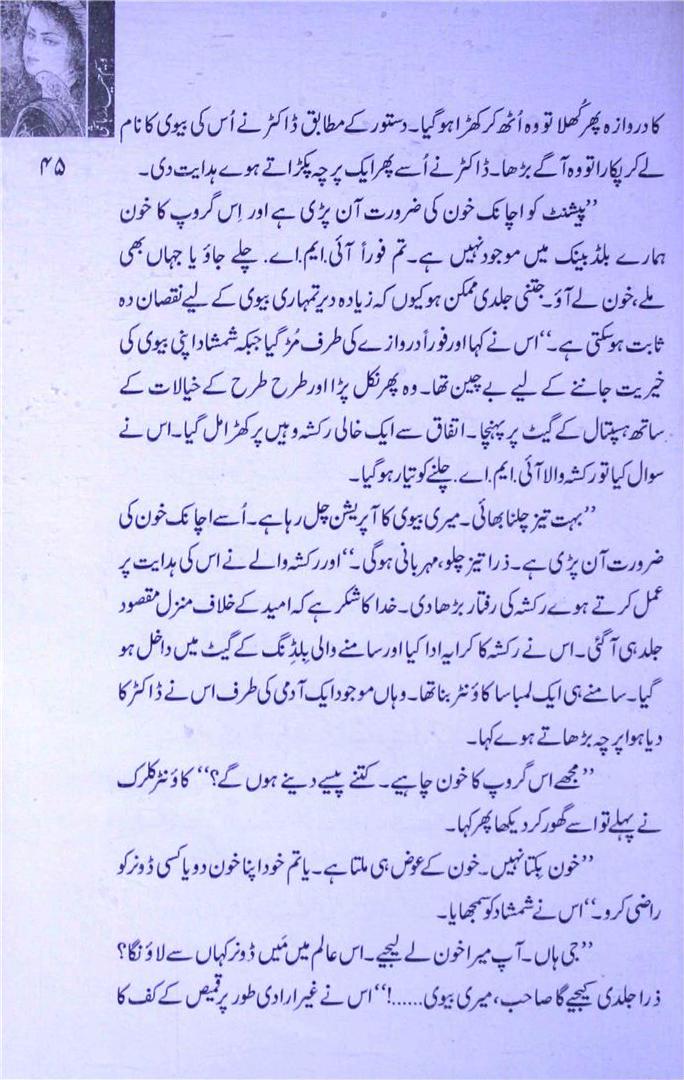 ۴۵
کا دروازہ پھر کُھلا تو وہ اُٹھ کر کھڑا ہو گیا۔ دستور کے مطابق ڈاکٹر نے اُس کی بیوی کا نام
لے کر پکارا تو وہ آگے بڑھا۔ ڈاکٹر نے اُسے پھر ایک پرچہ پکڑاتے ہوے ہدایت دی۔
”پیشنٹ کو اچانک خون کی ضرورت آن پڑی ہے اور اِس گروپ کا خون
ہمارے بلڈ بینک میں موجود نہیں ہے۔ تم فوراً آئی۔ایم۔اے۔ چلے جاؤ یا جہاں بھی
ملے، خون لے آؤ۔ جتنی جلدی ممکن ہو کیوں کہ زیادہ دیر تمہاری بیوی کے لیے نقصان دہ
ثابت ہو سکتی ہے۔“ اس نے کہا اور فوراً دروازے کی طرف مُڑ گیا جبکہ شمشاد اپنی بیوی کی
خیریت جاننے کے لیے بے چین تھا۔ وہ پھر نکل پڑا اور طرح طرح کے خیالات کے
ساتھ ہسپتال کے گیٹ پر پہنچا۔ اتفاق سے ایک خالی رکشہ وہیں پر کھڑا مل گیا۔ اس نے
سوال کیا تو رکشہ والا آئی۔ایم۔اے۔ چلنے کو تیار ہو گیا۔
”بہت تیز چلنا بھائی۔ میری بیوی کا آپریشن چل رہا ہے۔ اُسے اچانک خون کی
ضرورت آن پڑی ہے۔ ذرا تیز چلو، مہربانی ہوگی۔“ اور رکشہ والے نے اس کی ہدایت پر
عمل کرتے ہوے رکشہ کی رفتار بڑھا دی۔ خدا کا شکر ہے کہ امید کے خلاف منزل مقصود
جلد ہی آ گئی۔ اس نے رکشہ کا کرایہ ادا کیا اور سامنے والی بِلڈِنگ کے گیٹ میں داخل ہو
گیا۔ سامنے ہی ایک لمبا سا کاؤنٹر بنا تھا۔ وہاں موجود ایک آدمی کی طرف اس نے ڈاکٹر کا
دیا ہوا پرچہ بڑھاتے ہوے کہا۔
”مجھے اس گروپ کا خون چاہیے۔ کتنے پیسے دینے ہوں گے؟“ کاؤنٹر کلرک
نے پہلے تو اسے گھور کر دیکھا پھر کہا۔
”خون بِکتا نہیں۔ خون کے عوض ہی ملتا ہے۔ یا تم خود اپنا خون دو یا کسی ڈونر کو
راضی کرو۔“ اس نے شمشاد کو سمجھایا۔
”جی ہاں۔ آپ میرا خون لے لیجیے۔ اس عالم میں مَیں ڈونر کہاں سے لاؤنگا؟
ذرا جلدی کیجیے گا صاحب، میری بیوی......!“ اس نے غیر ارادی طور پر قمیص کے کف کا